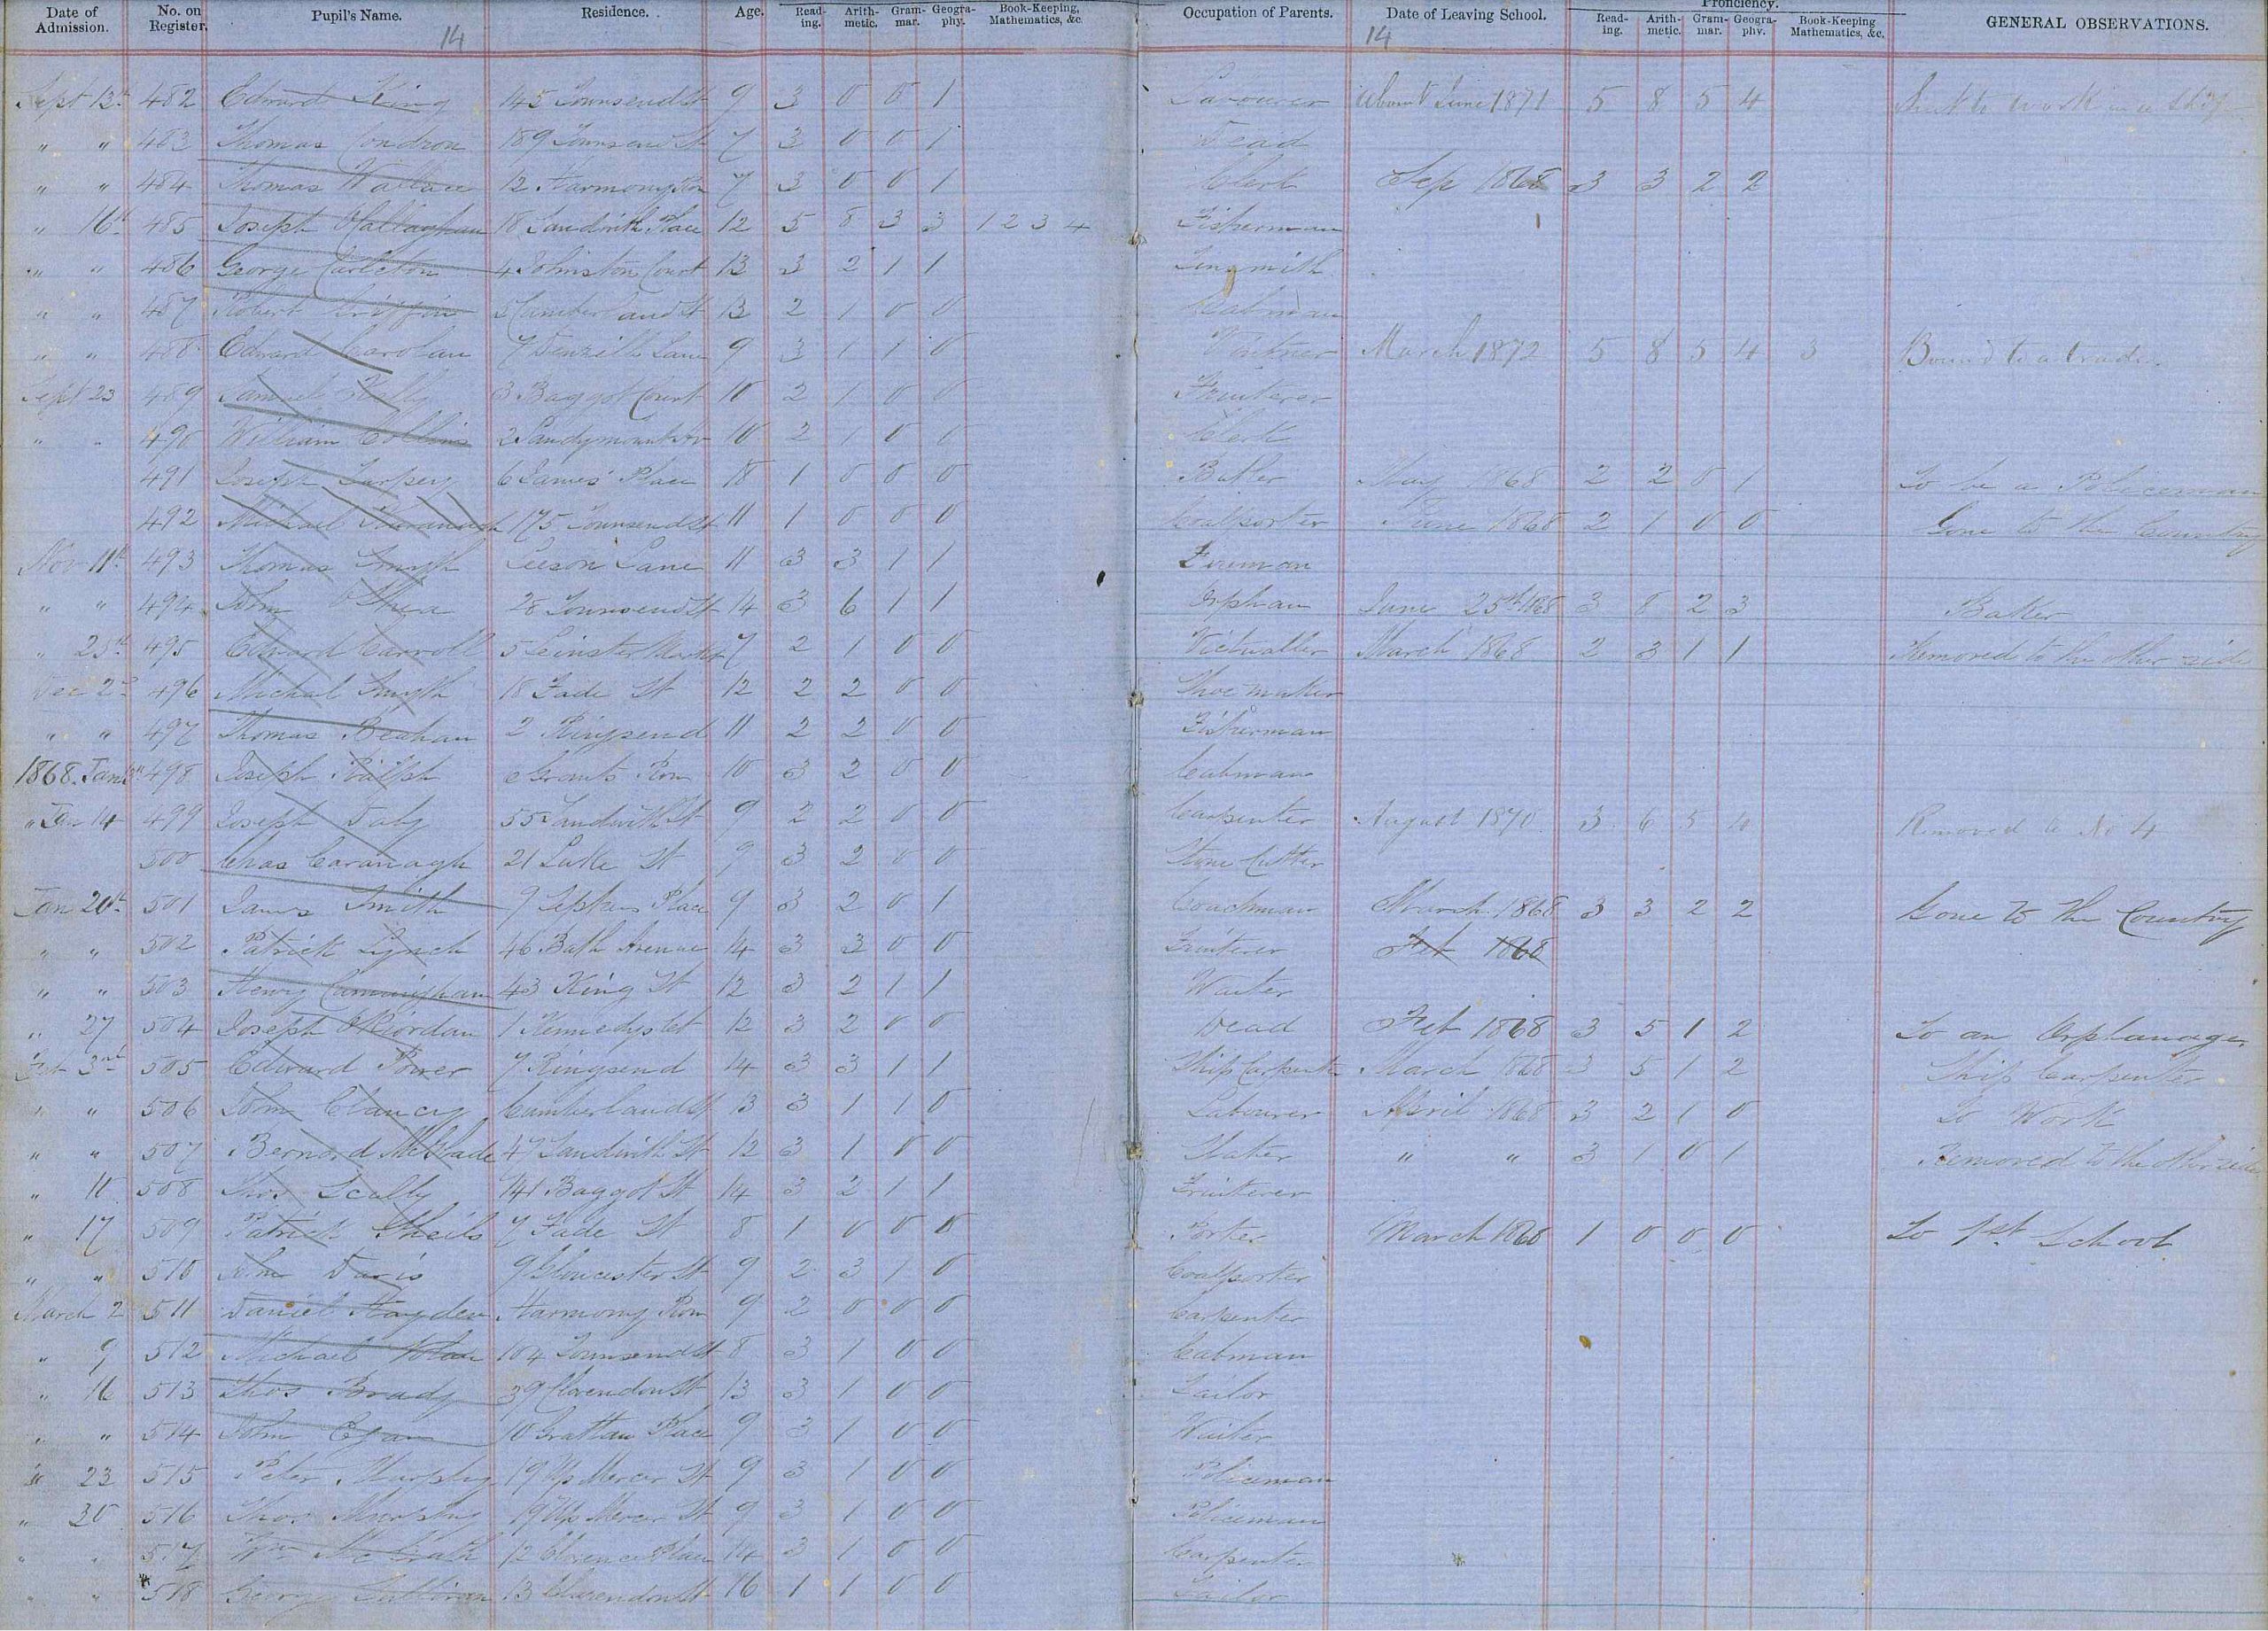 Date of Admission. No. on Register. Pupil's Name. Residence. Age. Reading. Arithmetic. Grammar. Geography. Book-Keeping, Mathematics, &c. Occupation of Parents. Date of Leaving School. Proficiency. Reading. Arithmetic. Grammar. Geography. Book-Keeping Mathematics, &c. GENERAL OBSERVATIONS.
14 14
Sept 13th 482 Edward King 145 Townsend St 9 3 0 0 1 Labourer About June 1871 5 8 5 4 Sent to work in a
" " 483 Thomas Condron 189 Townsend St 7 3 0 0 1 Dead
" " 484 Thomas Wallace 12 Harmony Row 7 3 0 0 1 Clerk Sep 1868 3 3 2 2
" 16th 485 Joseph O'Callaghan 18 Sandwith Place 12 5 8 3 3 1 2 3 4 Fisherman
" " 486 George Carleton 4 Johnston Court 13 3 2 1 1
" " 487 Robert Griffin 5 Cumberland St 13 2 1 0 0 Cabman
" " 488 Edward Carolan 7 Denzille Lane 9 3 1 1 0 Vintner March 1872 5 8 5 4 3 Bound to a trade.
Sept 23 489 Samuel Kelly 3 Baggot Court 10 2 1 0 0 Fruiterer
" " 490 William Collins 2 Sandymount Av 10 2 1 0 0 Clerk
491 Joseph Tarpey 6 James' Place 18 1 0 0 0 Butler May 1868 2 2 0 1 To be a Policeman
492 Michael Kavanagh 175 Townsend St 11 1 0 0 0 Coalporter June 1868 2 1 0 0 Gone to the Country
Nov 11th 493 Thomas Smyth Leeson Lane 11 3 3 1 1 Fireman
" " 494 John O'Shea 28 Townsend St 14 3 6 1 1 Orphan June 25th 1868 3 8 2 3 Baker
" 25th 495 Edward Carroll 5 Leinster Market 7 2 1 0 0 Victualler March 1868 2 3 1 1 Removed to the other side
Dec 2nd 496 Michael Smyth 18 Fade St 12 2 2 0 0 Shoe maker
" " 497 Thomas Beahan 2 Ringsend 11 2 2 0 0 Fisherman
1868. Jan 498 Joseph Ralph 6 Grants Row 10 3 2 0 0 Cabman
" Jan 14 499 Joseph 55 Sandwith St 9 2 2 0 0 Carpenter August 1870 3 6 5 4 Removed to No 4
500 Chas Cavanagh 21 Luke St 9 3 2 0 0 Stone Cutter
Jan 20th 501 James Smith 9 Place 9 3 2 0 1 Coachman March 1868 3 3 2 2 Gone to the Country
" " 502 Patrick Lynch 46 Bath Avenue 14 3 3 0 0 Fruiterer Feb 1868
" " 503 Henry Cunningham 43 King St 12 3 2 1 1 Waiter
" 27 504 Joseph O'Riordan 1 Kennedys Ct 12 3 2 0 0 Dead Feb 1868 3 5 1 2 To an Orphanage
Feb 3rd 505 Edward Power 7 Ringsend 14 3 3 1 1 Ship Carpenter March 1868 3 5 1 2 Ship Carpenter
" " 506 John Clancy Cumberland St 13 3 1 1 0 Labourer April 1868 3 2 1 0 To Work
" " 507 Bernard McGlade 47 Sandwith St 12 3 1 0 0 Slater " " 3 1 0 1 Removed to the other side
" 10 508 Thos Scully 141 Baggot St 14 3 2 1 1 Fruiterer
" 17 509 Patrick Sheils 7 Fade St 8 1 0 0 0 Porter March 1868 1 0 0 0 To 1st School
" " 510 John Davis 9 Gloucester St 9 2 3 1 0 Coalporter
March 2 511 Daniel Hayden Harmony Row 9 2 0 0 0 Carpenter
" 9 512 Michael Nolan 104 Townsend St 8 3 1 0 0 Cabman
" 16 513 Thos Brady 39 Clarendon St 13 3 1 0 0 Tailor
" " 514 John Egan 10 Grattan Place 9 3 1 0 0 Waiter
" 23 515 Peter Murphy 19 Up Mercer St 9 3 1 0 0 Policeman
" 30 516 Thos Murphy 19 Up Mercer St 9 3 1 0 0 Policeman
" " 517 Wm McGrath 12 Clarence Place 14 3 1 0 0 Carpenter
" " 518 George Sullivan 13 Clarendon St 16 1 1 0 0 Tailor